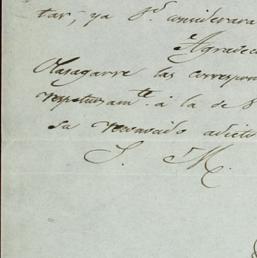 tar, ya Sd. considerara
Agradec
Olasagarre las correspon
respetuzamte. á la de S
su recovado adicto
S. M.